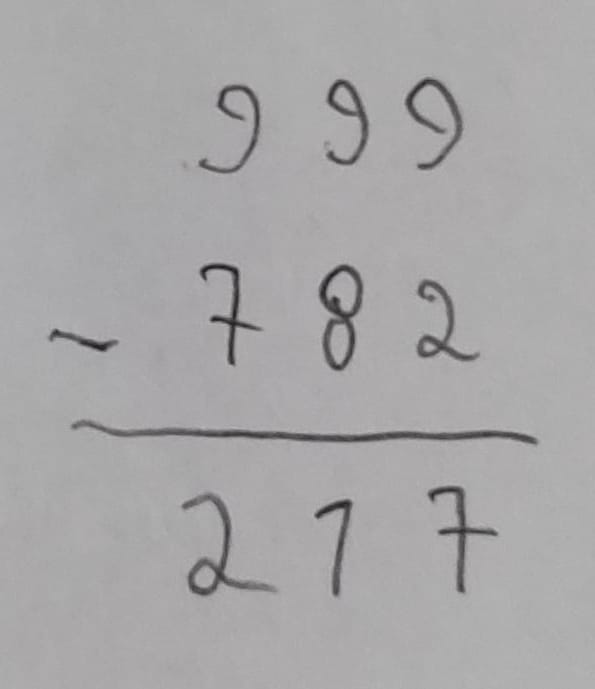 999
- 782
217